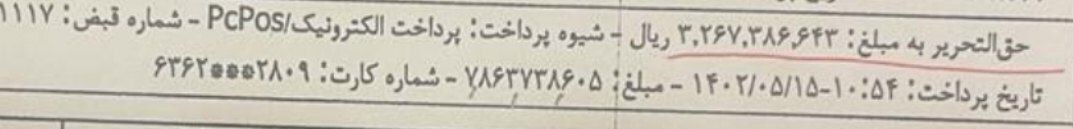 حق‌التحریر به مبلغ: ۳,۲۶۷,۳۸۶,۶۴۳ ریال - شیوه پرداخت: پرداخت الکترونیک/PcPos - شماره قبض: ۱۱۱۷
تاریخ پرداخت: ۱۰:۵۴-۱۴۰۲/۰۵/۱۵ - مبلغ: ۷۸۶۳۷۳۸۶۰۵ - شماره کارت: ۶۳۶۲***۲۸۰۹